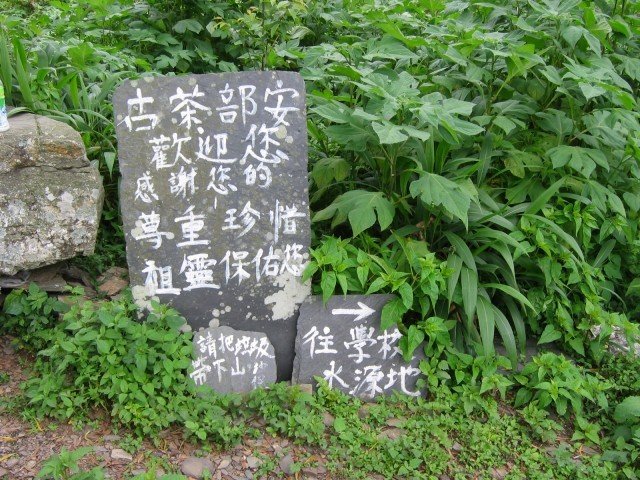 古茶部安
歡迎您
感謝您的
尊重珍惜
祖靈保佑您
請把垃圾
帶下山
→
往學校
水源地